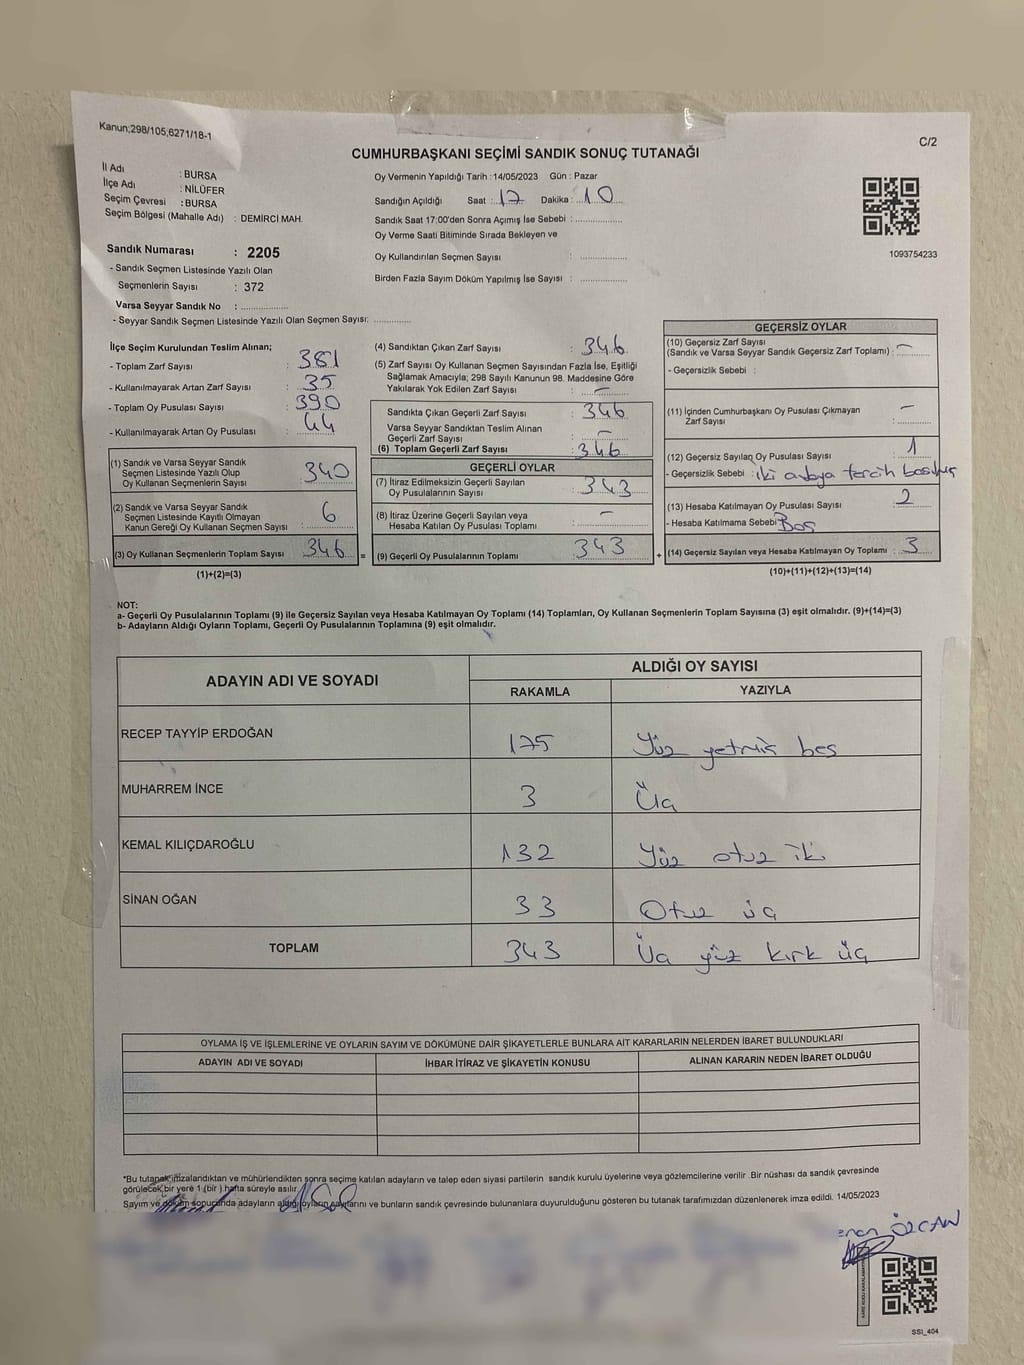 Kanun;298/105,6271/18-1
C/2
CUMHURBAŞKANI SEÇİMİ SANDIK SONUÇ TUTANAĞI
İl Adı : BURSA
İlçe Adı : NİLÜFER
Seçim Çevresi : BURSA
Seçim Bölgesi (Mahalle Adı) : DEMİRCİ MAH.
Sandık Numarası : 2205
- Sandık Seçmen Listesinde Yazılı Olan
Seçmenlerin Sayısı : 372
Varsa Seyyar Sandık No : ................
- Seyyar Sandık Seçmen Listesinde Yazılı Olan Seçmen Sayısı: .............
Oy Vermenin Yapıldığı Tarih : 14/05/2023 Gün : Pazar
Sandığın Açıldığı Saat : 17 Dakika : 10
Sandık Saat 17:00'den Sonra Açımış İse Sebebi : ................
Oy Verme Saati Bitiminde Sırada Bekleyen ve
Oy Kullandırılan Seçmen Sayısı : ................
Birden Fazla Sayım Döküm Yapılmış İse Sayısı : ................
1093754233
İlçe Seçim Kurulundan Teslim Alınan;
- Toplam Zarf Sayısı : 381
- Kullanılmayarak Artan Zarf Sayısı : 35
- Toplam Oy Pusulası Sayısı : 390
- Kullanılmayarak Artan Oy Pusulası : 44
(1) Sandık ve Varsa Seyyar Sandık
Seçmen Listesinde Yazılı Olup
Oy Kullanan Seçmenlerin Sayısı : 340
(2) Sandık ve Varsa Seyyar Sandık
Seçmen Listesinde Kayıtlı Olmayan
Kanun Gereği Oy Kullanan Seçmen Sayısı : 6
(3) Oy Kullanan Seçmenlerin Toplam Sayısı : 346 =
(1)+(2)=(3)
(4) Sandıktan Çıkan Zarf Sayısı : 346
(5) Zarf Sayısı Oy Kullanan Seçmen Sayısından Fazla İse, Eşitliği
Sağlamak Amacıyla; 298 Sayılı Kanunun 98. Maddesine Göre
Yakılarak Yok Edilen Zarf Sayısı : –
Sandıkta Çıkan Geçerli Zarf Sayısı : 346
Varsa Seyyar Sandıktan Teslim Alınan
Geçerli Zarf Sayısı : –
(6) Toplam Geçerli Zarf Sayısı : 346
GEÇERLİ OYLAR
(7) İtiraz Edilmeksizin Geçerli Sayılan
Oy Pusulalarının Sayısı : 343
(8) İtiraz Üzerine Geçerli Sayılan veya
Hesaba Katılan Oy Pusulası Toplamı : –
(9) Geçerli Oy Pusulalarının Toplamı : 343 +
GEÇERSİZ OYLAR
(10) Geçersiz Zarf Sayısı
(Sandık ve Varsa Seyyar Sandık Geçersiz Zarf Toplamı) : –
- Geçersizlik Sebebi :
(11) İçinden Cumhurbaşkanı Oy Pusulası Çıkmayan
Zarf Sayısı : –
(12) Geçersiz Sayılan Oy Pusulası Sayısı : 1
- Geçersizlik Sebebi : iki adaya tercih basılmış
(13) Hesaba Katılmayan Oy Pusulası Sayısı : 2
- Hesaba Katılmama Sebebi : Boş
(14) Geçersiz Sayılan veya Hesaba Katılmayan Oy Toplamı : 3
(10)+(11)+(12)+(13)=(14)
NOT:
a- Geçerli Oy Pusulalarının Toplamı (9) ile Geçersiz Sayılan veya Hesaba Katılmayan Oy Toplamı (14) Toplamları, Oy Kullanan Seçmenlerin Toplam Sayısına (3) eşit olmalıdır. (9)+(14)=(3)
b- Adayların Aldığı Oyların Toplamı, Geçerli Oy Pusulalarının Toplamına (9) eşit olmalıdır.
ADAYIN ADI VE SOYADI
ALDIĞI OY SAYISI
RAKAMLA YAZIYLA
RECEP TAYYİP ERDOĞAN 175 Yüz yetmiş beş
MUHARREM İNCE 3 Üç
KEMAL KILIÇDAROĞLU 132 Yüz otuz iki
SİNAN OĞAN 33 Otuz üç
TOPLAM 343 Üç yüz kırk üç
OYLAMA İŞ VE İŞLEMLERİNE VE OYLARIN SAYIM VE DÖKÜMÜNE DAİR ŞİKAYETLERLE BUNLARA AİT KARARLARIN NELERDEN İBARET BULUNDUKLARI
ADAYIN ADI VE SOYADI İHBAR İTİRAZ VE ŞİKAYETİN KONUSU ALINAN KARARIN NEDEN İBARET OLDUĞU
*Bu tutanak imzalandıktan ve mühürlendikten sonra seçime katılan adayların ve talep eden siyasi partilerin sandık kurulu üyelerine veya gözlemcilerine verilir .Bir nüshası da sandık çevresinde
görülecek bir yere 1 (bir ) hafta süreyle asılır.
Sayım ve döküm sonucunda adayların aldığı oyların sayılarını ve bunların sandık çevresinde bulunanlara duyurulduğunu gösteren bu tutanak tarafımızdan düzenlenerek imza edildi. 14/05/2023
ÖZCAN
SSİ_404